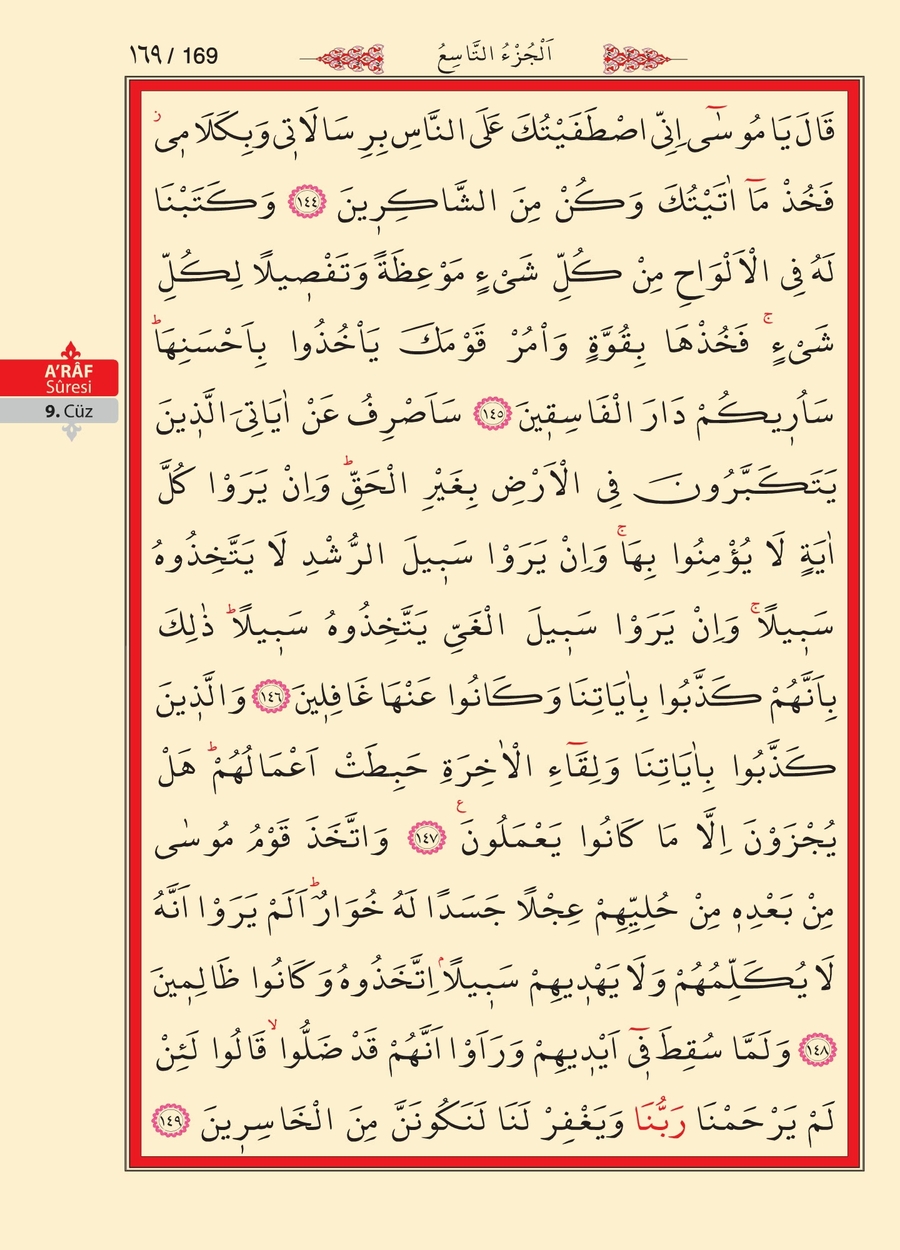 ١٦٩ / 169
اَلْجُزْءُ التَّاسِعُ
A'RÂF
Sûresi
9. Cüz
قَالَ يَا مُوسٰٓى اِنِّي اصْطَفَيْتُكَ عَلَى النَّاسِ بِرِسَالَاتٖي وَبِكَلَامٖي ز
فَخُذْ مَٓا اٰتَيْتُكَ وَكُنْ مِنَ الشَّاكِرٖينَ ﴿١٤٤﴾ وَكَتَبْنَا
لَهُ فِي الْاَلْوَاحِ مِنْ كُلِّ شَيْءٍ مَوْعِظَةً وَتَفْصٖيلًا لِكُلِّ
شَيْءٍۚ فَخُذْهَا بِقُوَّةٍ وَاْمُرْ قَوْمَكَ يَاْخُذُوا بِاَحْسَنِهَاؕ
سَاُرٖيكُمْ دَارَ الْفَاسِقٖينَ ﴿١٤٥﴾ سَاَصْرِفُ عَنْ اٰيَاتِيَ الَّذٖينَ
يَتَكَبَّرُونَ فِي الْاَرْضِ بِغَيْرِ الْحَقِّؕ وَاِنْ يَرَوْا كُلَّ
اٰيَةٍ لَا يُؤْمِنُوا بِهَاۚ وَاِنْ يَرَوْا سَبٖيلَ الرُّشْدِ لَا يَتَّخِذُوهُ
سَبٖيلًاۚ وَاِنْ يَرَوْا سَبٖيلَ الْغَيِّ يَتَّخِذُوهُ سَبٖيلًاؕ ذٰلِكَ
بِاَنَّهُمْ كَذَّبُوا بِاٰيَاتِنَا وَكَانُوا عَنْهَا غَافِلٖينَ ﴿١٤٦﴾ وَالَّذٖينَ
كَذَّبُوا بِاٰيَاتِنَا وَلِقَٓاءِ الْاٰخِرَةِ حَبِطَتْ اَعْمَالُهُمْؕ هَلْ
يُجْزَوْنَ اِلَّا مَا كَانُوا يَعْمَلُونَ ع ﴿١٤٧﴾ وَاتَّخَذَ قَوْمُ مُوسٰى
مِنْ بَعْدِهٖ مِنْ حُلِيِّهِمْ عِجْلًا جَسَدًا لَهُ خُوَارٌؕ اَلَمْ يَرَوْا اَنَّهُ
لَا يُكَلِّمُهُمْ وَلَا يَهْدٖيهِمْ سَبٖيلًاۢ اِتَّخَذُوهُ وَكَانُوا ظَالِمٖينَ
﴿١٤٨﴾ وَلَمَّا سُقِطَ فٖٓي اَيْدٖيهِمْ وَرَاَوْا اَنَّهُمْ قَدْ ضَلُّواۙ قَالُوا لَئِنْ
لَمْ يَرْحَمْنَا رَبُّنَا وَيَغْفِرْ لَنَا لَنَكُونَنَّ مِنَ الْخَاسِرٖينَ ﴿١٤٩﴾